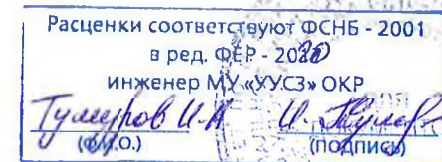 Расценки соответствуют ФСНБ - 2001
в ред. ФЕР - 2020
инженер МУ «УУСЗ» ОКР
Тумуров И.А
(Ф.И.О.) (подпись)